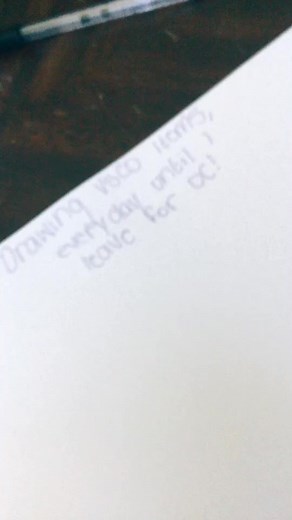 Drawing vsco items,
everyday until I
leave for DC!